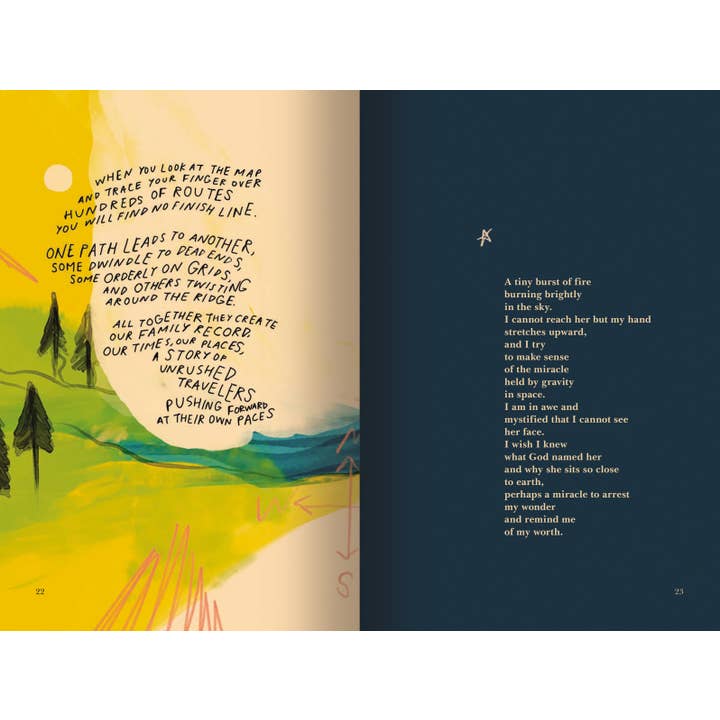 WHEN YOU LOOK AT THE MAP
AND TRACE YOUR FINGER OVER
HUNDREDS OF ROUTES
YOU WILL FIND NO FINISH LINE.
ONE PATH LEADS TO ANOTHER,
SOME DWINDLE TO DEAD ENDS,
SOME ORDERLY ON GRIDS,
AND OTHERS TWISTING
AROUND THE RIDGE.
ALL TOGETHER THEY CREATE
OUR FAMILY RECORD.
OUR TIMES, OUR PLACES,
A STORY OF
UNRUSHED
TRAVELERS
PUSHING FORWARD
AT THEIR OWN PACES
W
S
22
A tiny burst of fire
burning brightly
in the sky.
I cannot reach her but my hand
stretches upward,
and I try
to make sense
of the miracle
held by gravity
in space.
I am in awe and
mystified that I cannot see
her face.
I wish I knew
what God named her
and why she sits so close
to earth,
perhaps a miracle to arrest
my wonder
and remind me
of my worth.
23